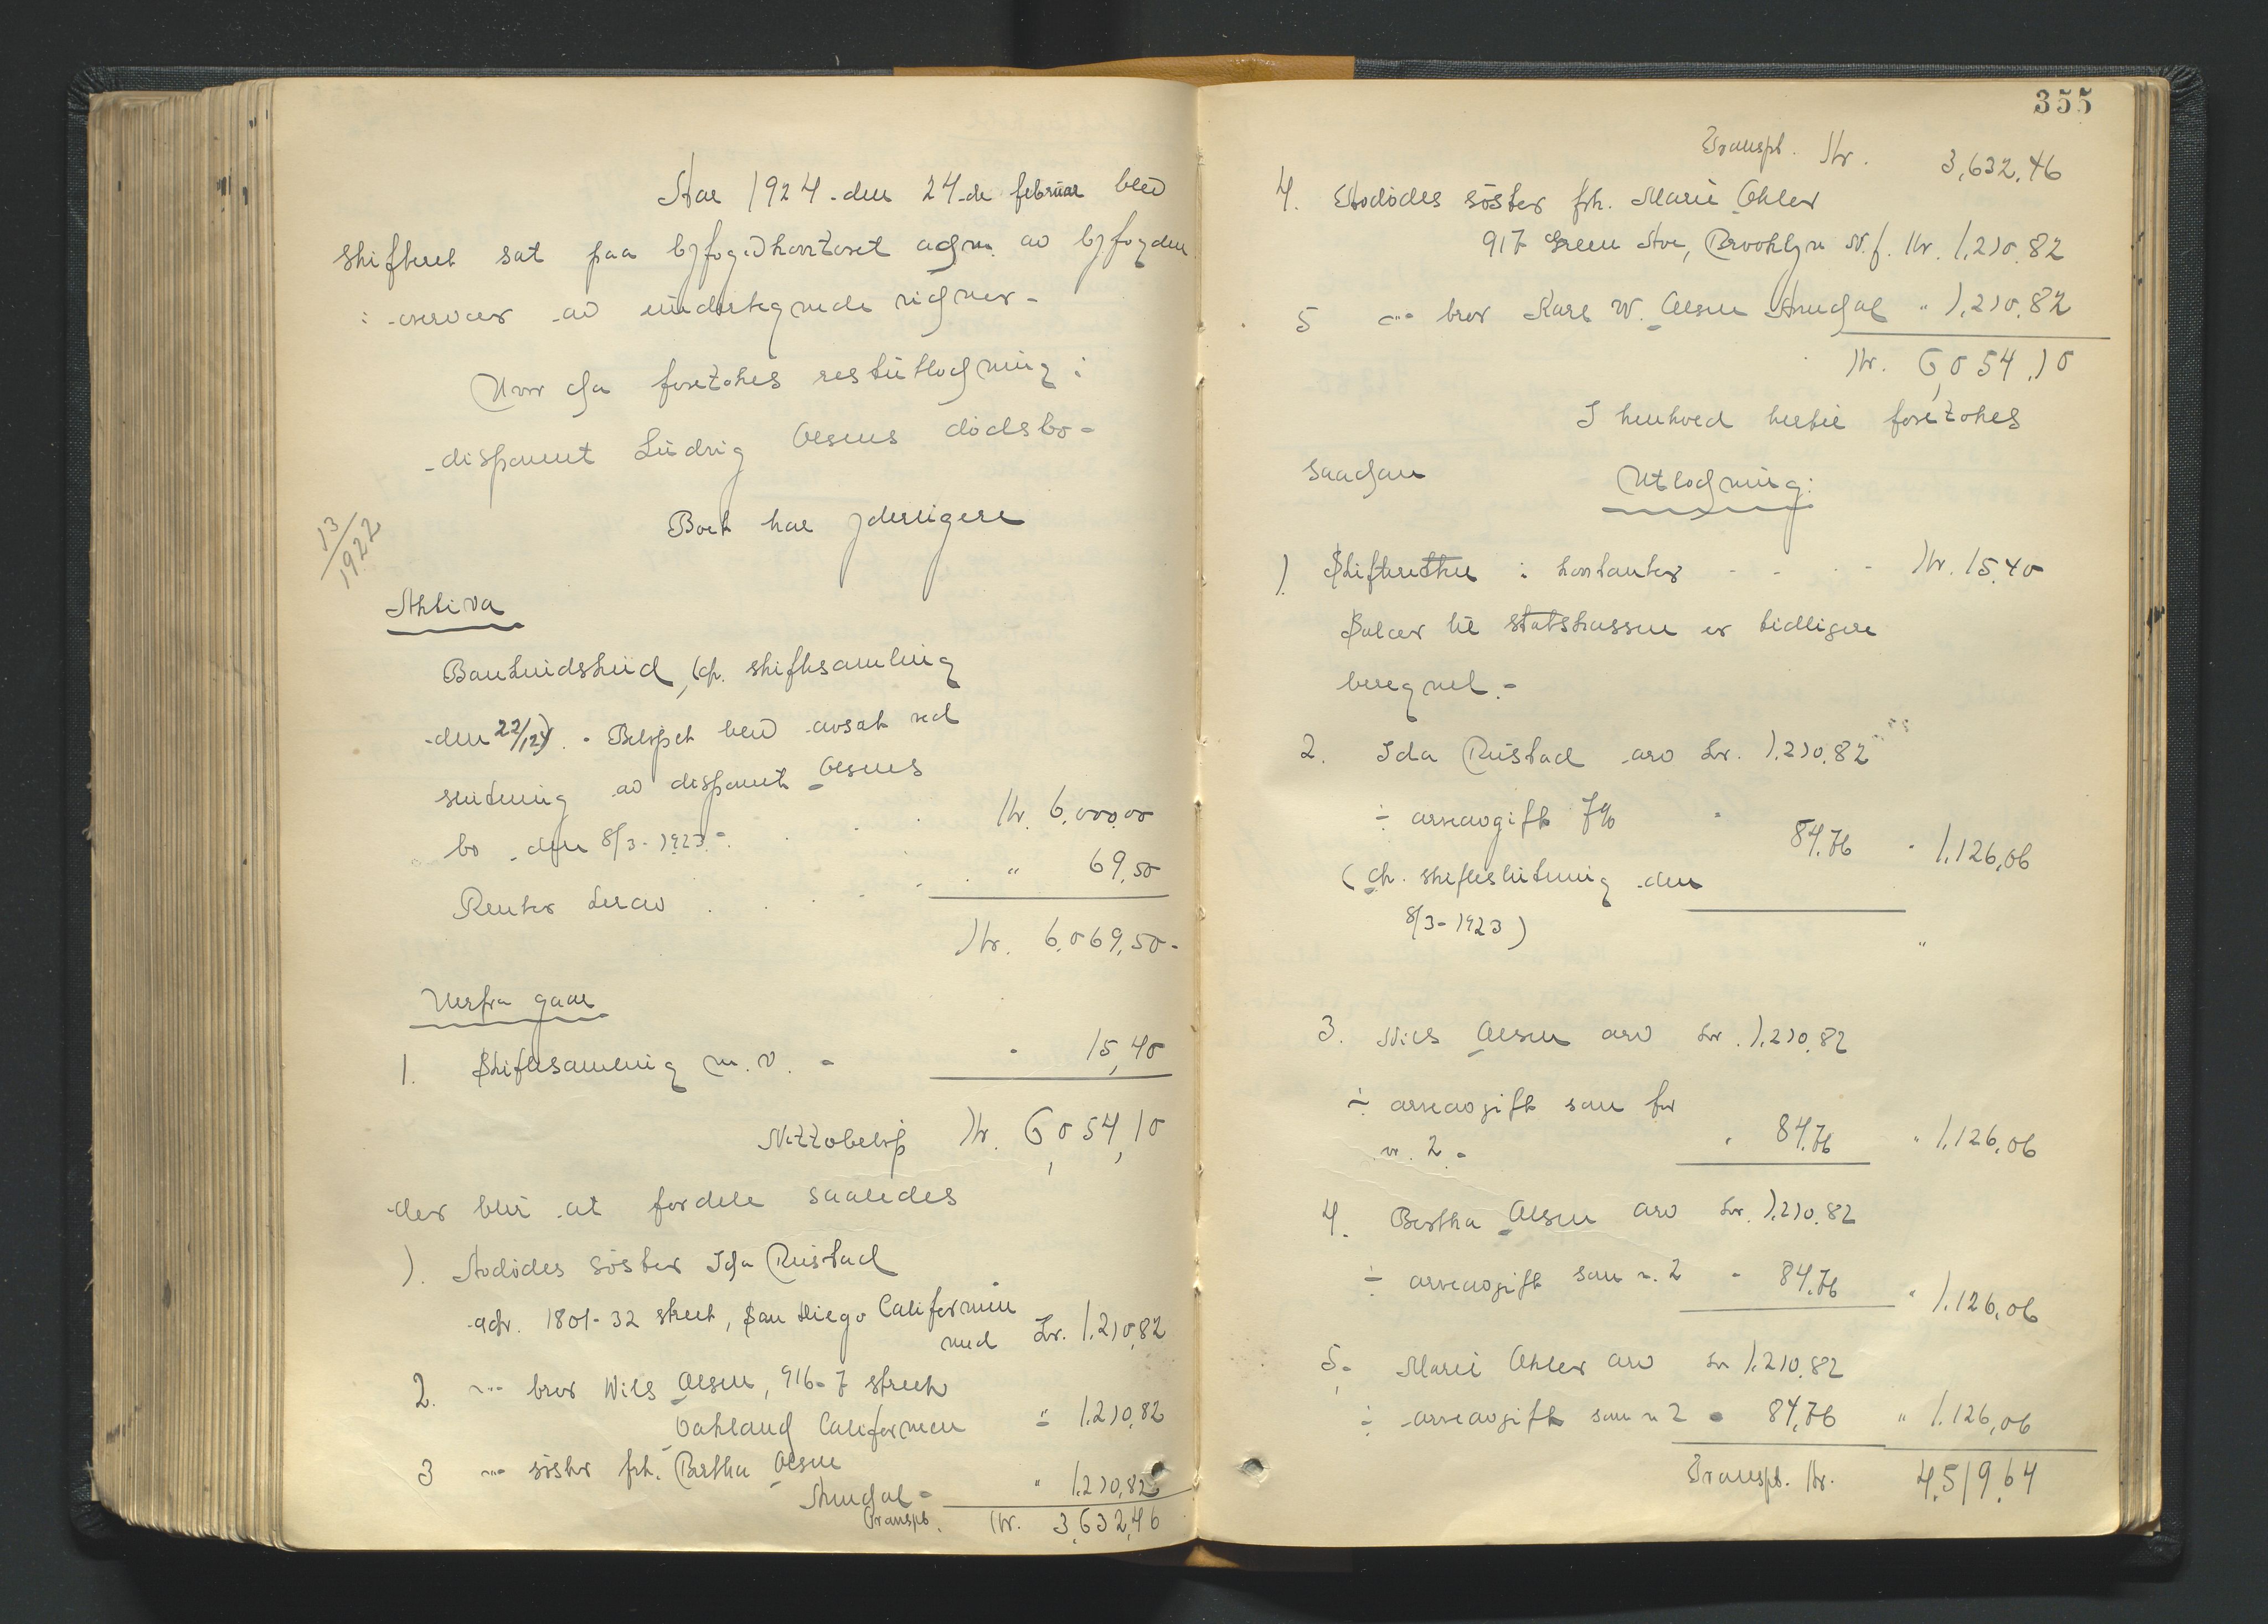 Aar 1924 den 24de februar blev
skifteret sat paa byfogdkontoret adm. av byfogden
i nærvær av undertegnede vidner -
Hvor da foretokes restutlodning i
disponent Ludvig Olsens dødsbo -
13/1922
Boet har yderligere
Aktiva
Bankindskud, cfr. skiftesamling
den 22/12 . - Beløpet blev avsat ved
slutning av disponent Olsens
bo den 8/3 - 1923 - . . . Kr. 6,000,00
Renter derav . . . . . " 69,50
Kr. 6,069,50 -
Herfra gaar
1. Skiftesamling m. v. - - 15,40
Nettobeløp Kr. 6,054,10
der blir at fordele saaledes
1. Avdødes søster Ida Rustad
adr. 1801 - 32 street, San Diego Californien
med kr. 1,210,82
2. --- bror Nils Olsen, 916 - 7 street
Oakland Californien - 1,210,82
3 --- søster frk. Bertha Olsen
Arendal - " 1,210,82
Transpt. Kr. 3,632,46
355
Transpt. Kr. 3,632,46
4. Avdødes søster frk. Marie Ohler
917 Green Ave, Brooklyn N.J. Kr. 1,210,82
5 --- bror Karl W. Olsen Arendal " 1,210,82
Kr. 6,054,10
I henhold hertil foretokes
saadan Utlodning:
1. Skifteretten i kontanter - - - - Kr. 15,40
Salær til statskassen er tidligere
beregnet. -
2. Ida Rustad arv kr. 1,210,82
÷ arveavgift 7% - 84,76 - 1,126,06
(cfr. skifteslutning den
8/3 - 1923) "
3. Nils Olsen arv kr. 1,210,82
÷ arveavgift som for
nr. 2. - " 84,76 " 1,126,06
4. Bertha Olsen arv kr. 1,210,82
÷ arveavgift som n. 2 - 84,76 " 1,126,06
5. Marie Ohler arv kr 1,210,82
÷ arveavgift som n 2 - 84,76 " 1,126,06
Transpt. Kr. 4,519,64